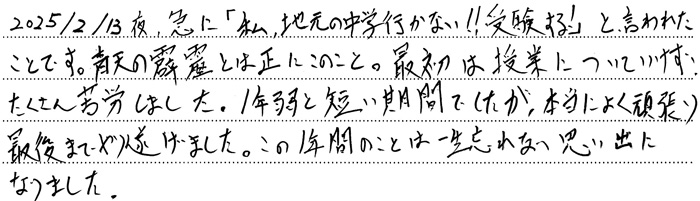 2025/2/13夜、急に「私、地元の中学行かない!!受験する!」と言われた
ことです。青天の霹靂とは正にこのこと。最初は授業についていけず、
たくさん苦労しました。1年弱と短い期間でしたが、本当によく頑張り
最後までやり遂げました。この1年間のことは一生忘れない思い出に
なりました。